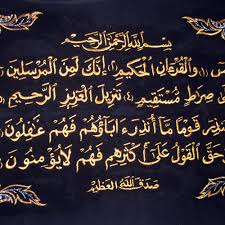 بِسْمِ اللَّهِ الرَّحْمَٰنِ الرَّحِيمِ
يس (١) وَالْقُرْءَانِ الْحَكِيمِ (٢) إِنَّكَ لَمِنَ الْمُرْسَلِينَ
صِرَاطٍ مُّسْتَقِيمٍ (٤) تَنزِيلَ الْعَزِيزِ الرَّحِيمِ
قَوْمًا مَّا أُنذِرَ ءَابَاؤُهُمْ فَهُمْ غَٰفِلُونَ
حَقَّ الْقَوْلُ عَلَىٰ أَكْثَرِهِمْ فَهُمْ لَا يُؤْمِنُونَ
صَدَقَ اللَّهُ الْعَظِيمُ